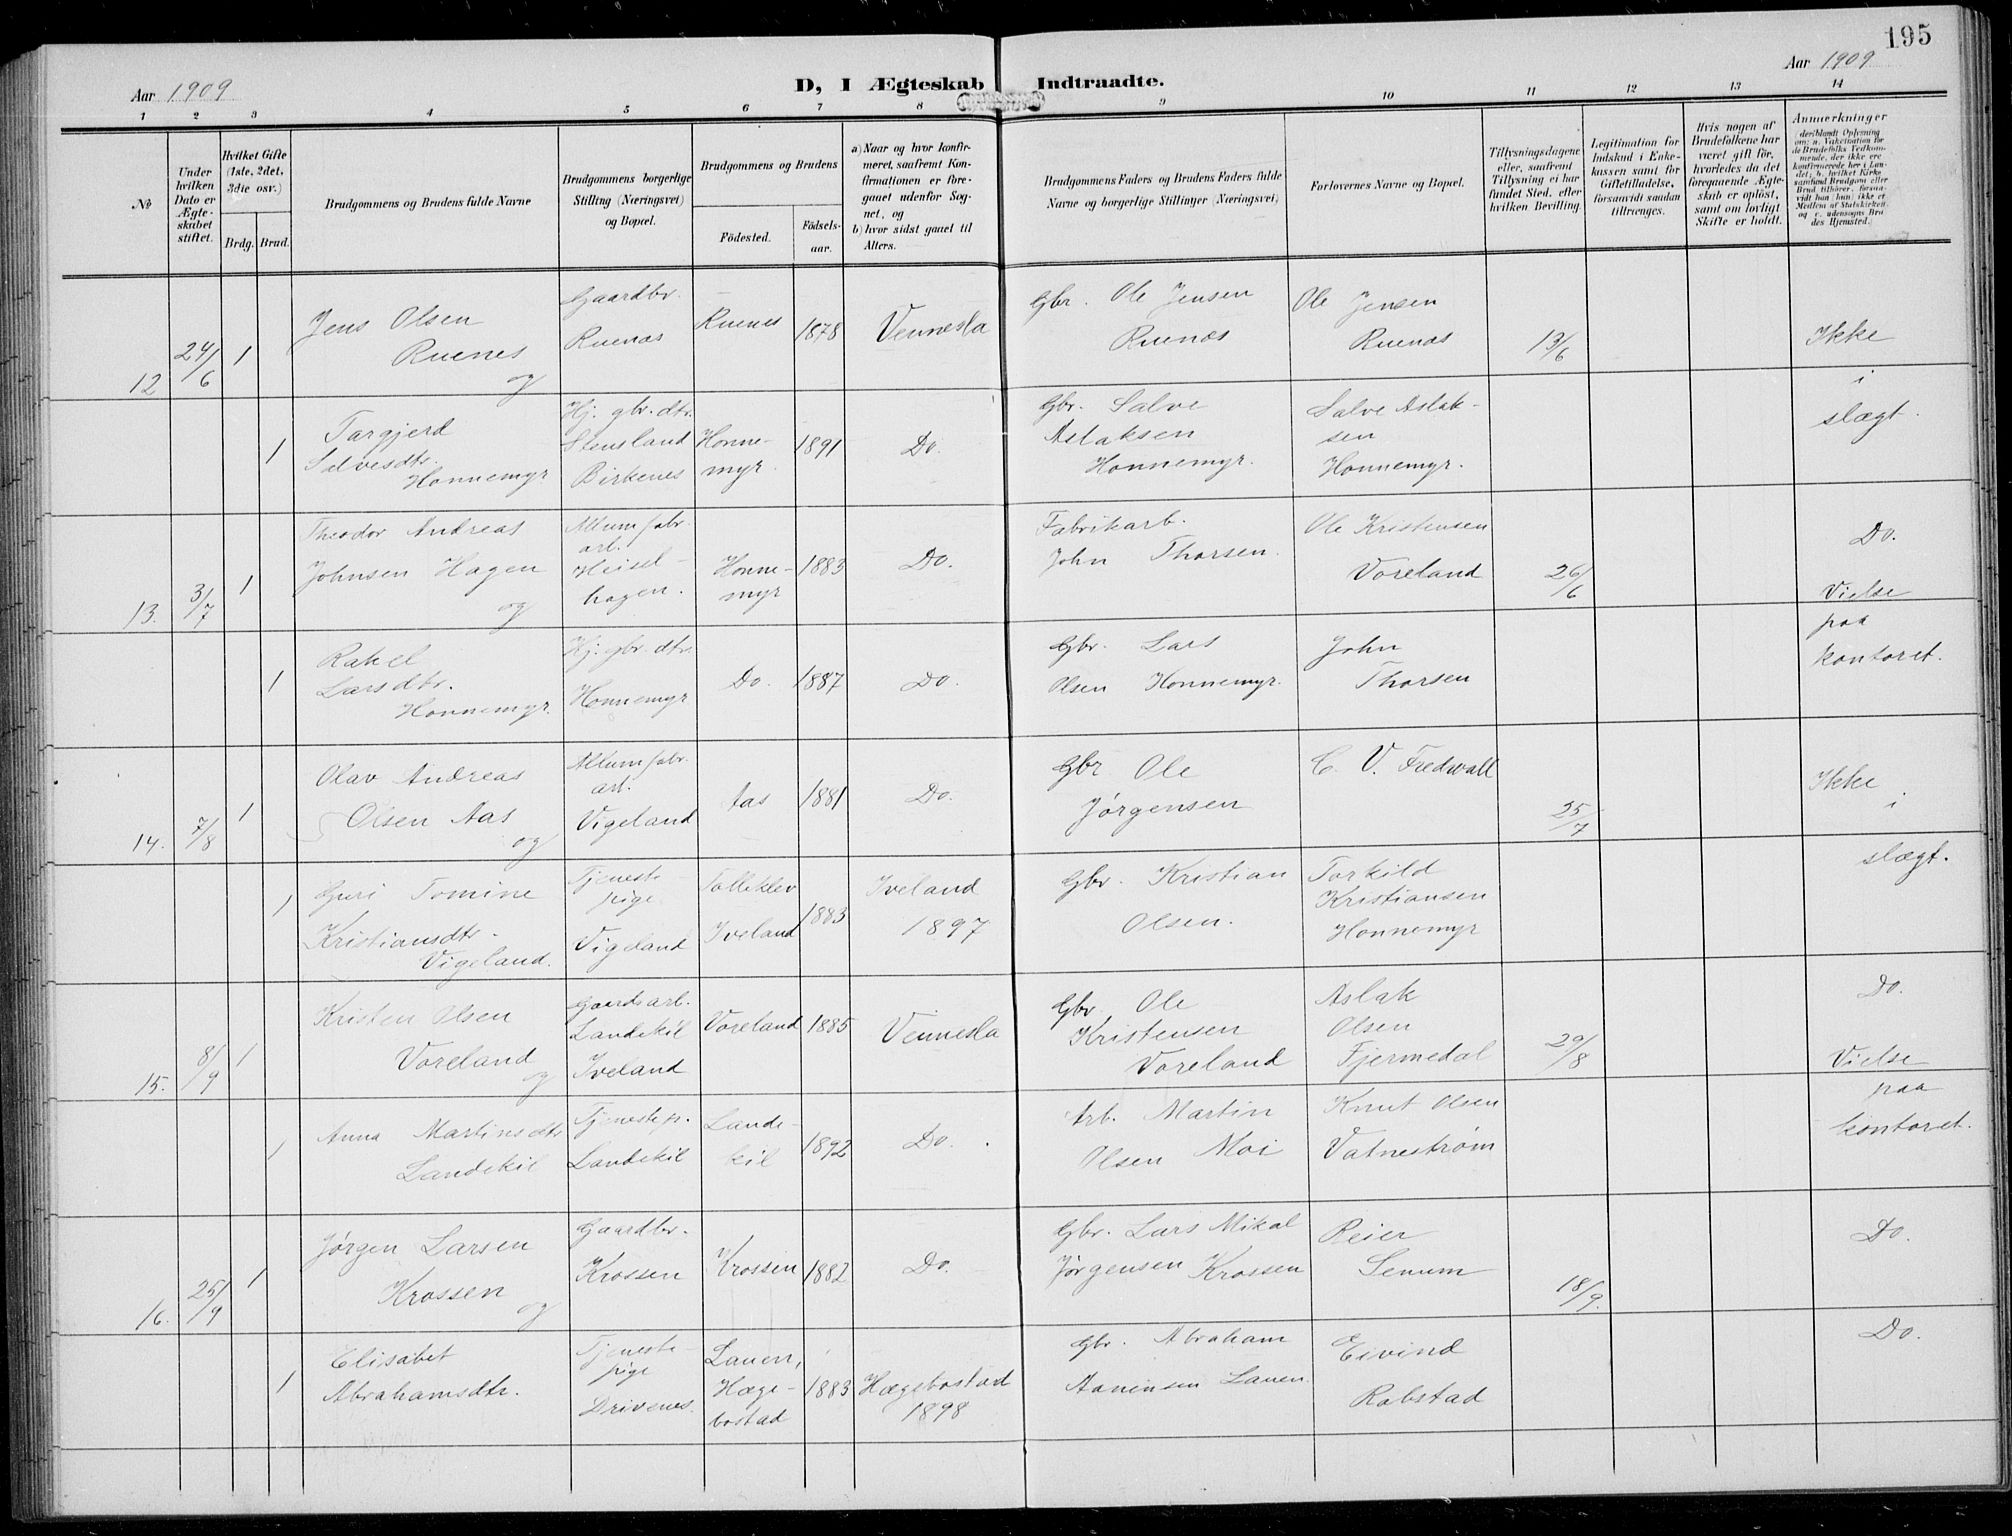 195
Aar 1909
D, I Ægteskab Indtraadte.
Aar 1909
1 2 3 4 5 6 7 8 9 10 11 12 13 14
No
Under hvilken Dato er Ægteskabet stiftet.
Hvilket Gifte (1ste, 2det, 3die osv.)
Brdg. Brud.
Brudgommens og Brudens fulde Navne
Brudgommens borgerlige Stilling (Næringsvei) og Bopæl.
Brudgommens og Brudens
Födested.
Födselsaar.
a) Naar og hvor konfirmeret, saafremt Konfirmationen er foregaaet udenfor Sognet, og
b) hvor sidst gaaet til Alters.
Brudgommens Faders og Brudens Faders fulde Navne og borgerlige Stillinger (Næringsvei)
Forlovernes Navne og Bopæl.
Tillysningsdagene eller, saafremt Tillysning ei har fundet Sted, efter hvilken Bevilling.
Legitimation for Indskud i Enkekassen samt for Giftetilladelse, forsaavidt saadan tiltrænges.
Hvis nogen af Brudefolkene har været gift för, hvorledes da det foregaaende Ægteskab er oplöst, samt om lovligt Skifte er holdt.
Anmerkninger
(deriblandt Oplysning om: a. Vakcination for de Brudefolks Vedkommende, der ikke ere konfirmerede her i Landet; b. hvilket Kirkesamfund Brudgom eller Brud tilhörer, forsaavidt han (hun) ikke er Medlem af Statskirken og c. udensogns Brudes Hjemsted.)
12 24/6 1
Jens Olsen
Ruenes
og
Gaardbr.
Ruenæs
Ruenes
1878
Vennesla
Gbr. Ole Jensen
Ruenæs
Ole Jensen
Ruenæs
13/6
Ikke
i
slægt.
1
Targjerd
Salvesdtr.
Honnemyr
Hj. gbr. dtr.
Stensland
Birkenes
Honnemyr.
1891
Do.
Gbr. Salve
Aslaksen
Honnemyr.
Salve Aslaksen
Honnemyr.
13. 3/7 1
Theodor Andreas
Johnsen Hagen
og
Allum fabr.
arb.
Heiselhagen.
Honnemyr
1883
Do.
Fabrikarb.
John Thorsen.
Ole Kristensen
Voreland
26/6
Do.
Vielse
paa
kontoret.
1
Rakel
Larsdtr.
Honnemyr.
Hj. gbr. dtr.
Honnemyr
Do.
1887
Do.
Gbr. Lars
Olsen Honnemyr.
John
Thorsen
14. 7/8 1
Olav Andreas
Olsen Aas
og
Allum fabr.
arb.
Vigeland
Aas
1881
Do.
Gbr Ole
Jørgensen
C. V. Fredwall
25/7
Ikke
i
slægt.
1
Guri Tomine
Kristiansdtr.
Vigeland.
Tjenestepige
Vigeland
Tolleklev
Iveland
1883
Iveland
1897
Gbr. Kristian
Olsen.
Torkild
Kristiansen
Honnemyr
15. 8/9 1
Kristen Olsen
Voreland
og
Gaardsarb.
Landekil
Iveland
Voreland
1885
Vennesla
Gbr. Ole
Kristensen
Voreland
Aslak
Olsen
Fjermedal
29/8
Do.
Vielse
paa
kontoret.
1
Anna Martinsdtr
Landekil
Tjenestep.
Landekil
Landekil
1892
Do.
Arb. Martin
Olsen Moi
Knut Olsen
Vatnestrøm
16. 25/9 1
Jørgen Larsen
Krossen
og
Gaardbr.
Krossen
Krossen
1882
Do.
Gbr. Lars Mikal
Jørgensen Krossen
Reier
Senum
18/9.
Do.
1
Elisabet
Abrahamsdtr.
Tjenestepige
Drivenes.
Lauen,
Hægebostad
1883
Hægebostad
1898
Gbr. Abraham
Aanensen Lauen.
Eivind
Robstad
Do.